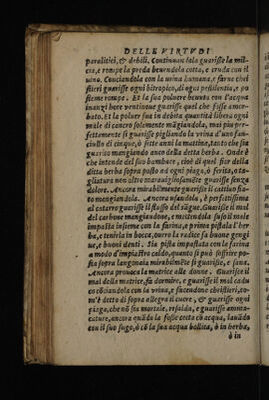 DELLE VIRTVDI
paralitici, & debili. Continuandola guarisse la mil-
cia, e rompe la preda beuendola cotta, e cruda con il
uino. Couciandola con la urina humana, e farne chri
stieri guarisse ogni hitropico, di ogni pestilentia, e po
steme rompe. Et la sua poluere beuuta con l'acqua
inanzi hore uentinoue guarisse quel che fusse amor-
bato. Et la poluer sua in debita quantità libera ogni
male di cancro solamente mãgiandola, mai piu per-
fettamente si guarisse pigliando la urina d'uno fan-
ciullo di cinque, ò sette anni la mattina, tanto che sia
guarito mangiando anco della detta herba. Onde è
che intende del suo bambace, cioè di quel fior della
ditta herba sopra posto ad ogni piaga, ò ferita, ò ta-
gliatura non altro marauigliosamẽte guarisse senza
dolore. Ancora mirabilmente guarisse il cattiuo fia-
to mangiandola. Ancora usandola, è perfettissima
al catarro guarisse il flusso del sãgue. Guarisse il mal
del carbone mangiandone, e mettendola suso il male
impasta insieme con la farina, e prima pistala l'her
ba, e tenirla in bocca, ouero la radice fa buone gengi
ue, e buoni denti. Sia pista impastata con la farina
a modo d'impiastro caldo, quanto si può soffrire po-
sta sopra la egonaia mirabilmẽte si guarisse, e sana.
Ancora prouoca la matrice alle donne. Guarisse il
mal della matrice, fa dormire, e guarisse il mal cadu
co cõciandola con la urina, e facendone christieri, co-
m'è detto di sopra allegra il cuore, & guarisse ogni
piaga, che nõ sia mortale, risalda, e guarisse amma-
cature, ancora quãdo la fosse cotta cõ acqua, lauãdo
con il suo sugo, ò cõ la sua acqua bollita, ò in herba,
ò in